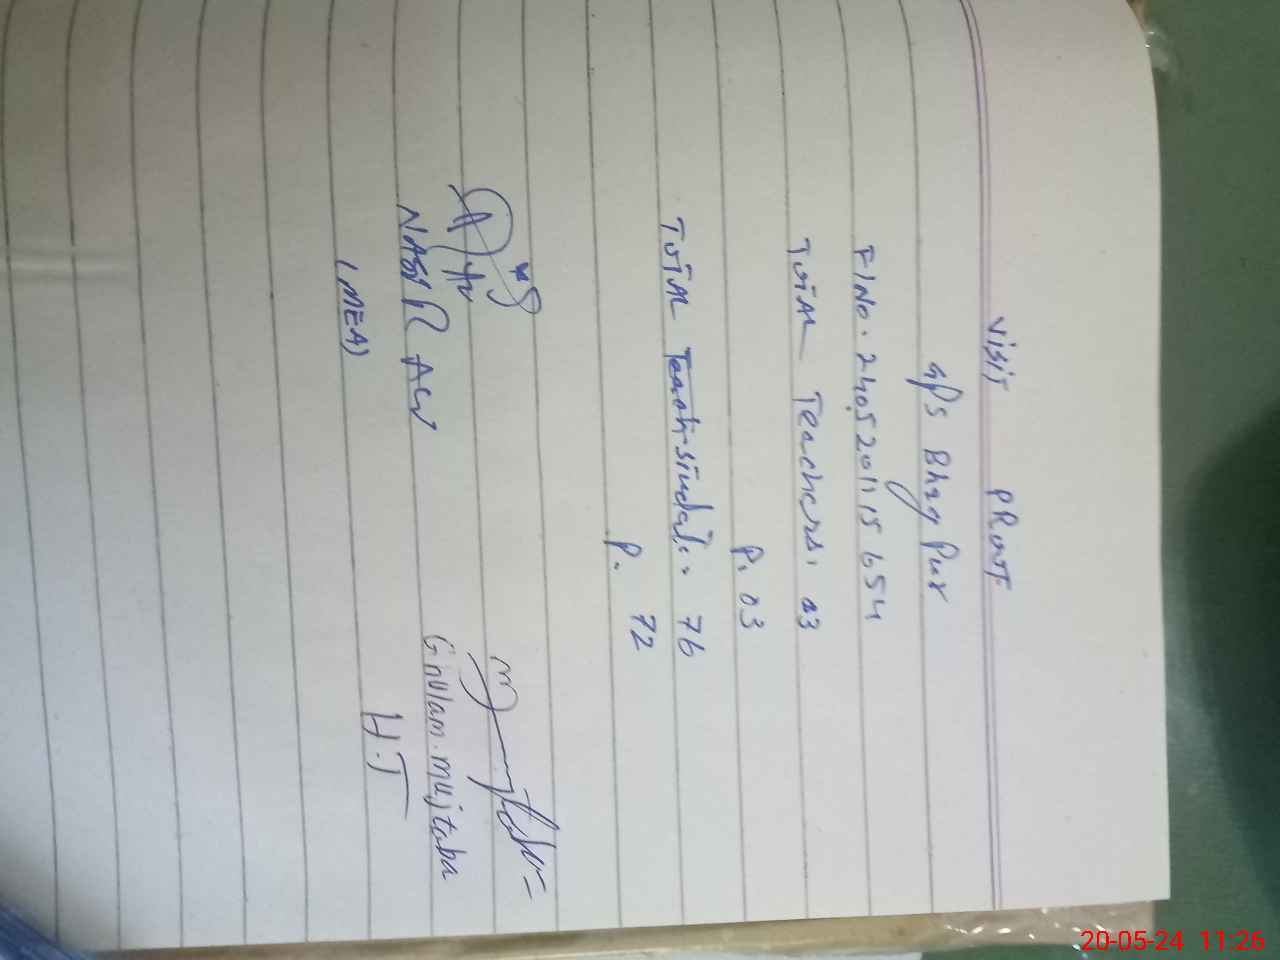 Visit PRoot
GPS Bhag Pur
F/No. 2405201115654
Total Teachers. 03
P. 03
Total Teach Studal: 76
P. 72
NASIR Ali
(MEA)
Ghulam.Mujtaba
H.T
20-05-24 11:26